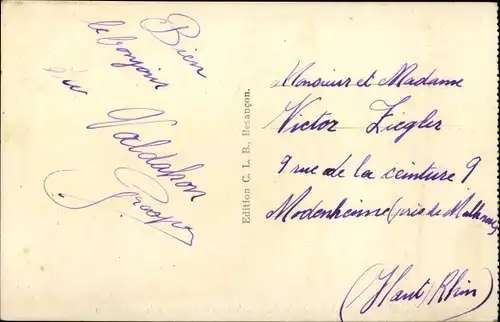 Bien
le bonjour
du
Valdahon
Edition C. L. B., Besançon.
Monsieur et Madame
Victor Ziegler
9 rue de la ceinture 9
Modenheime (près de Mulhouse)
(Haut Rhin)